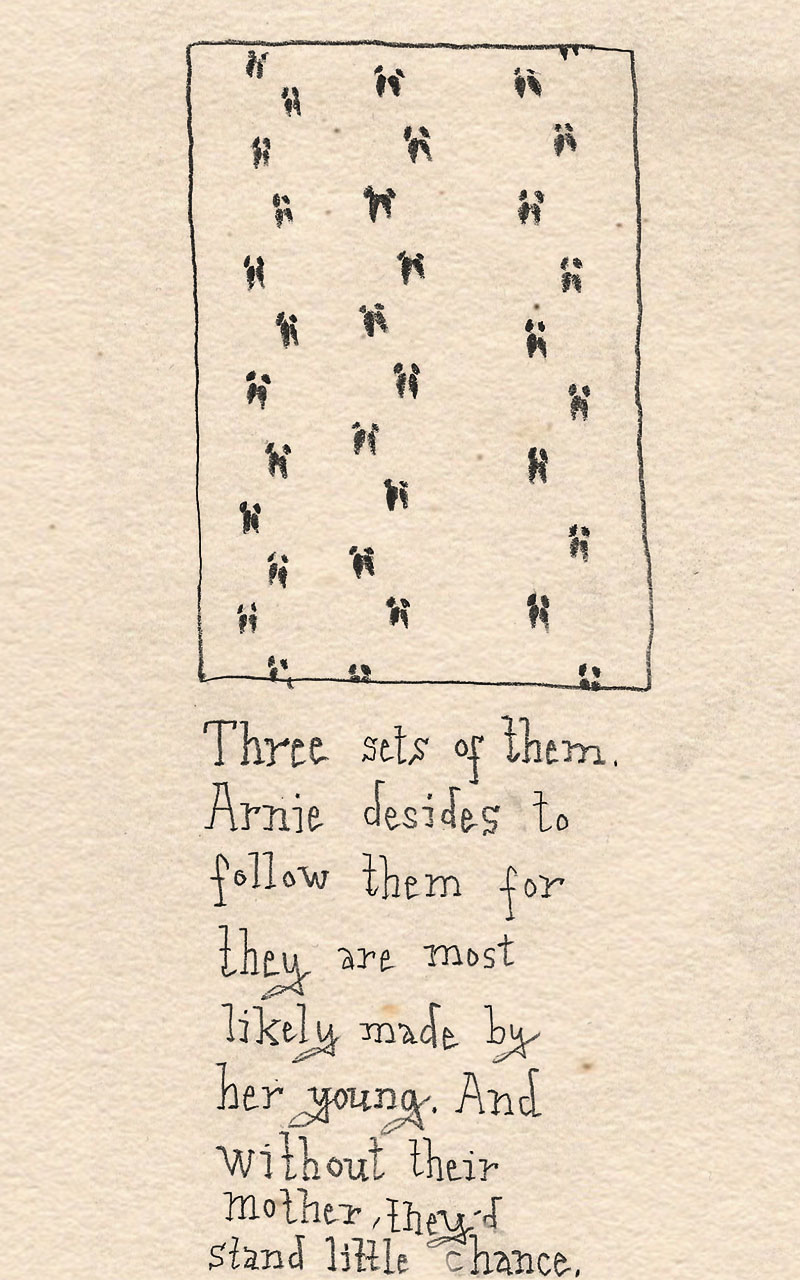 Three sets of them.
Arnie desides to
follow them for
they are most
likely made by
her young. And
without their
mother, they'd
stand little chance.